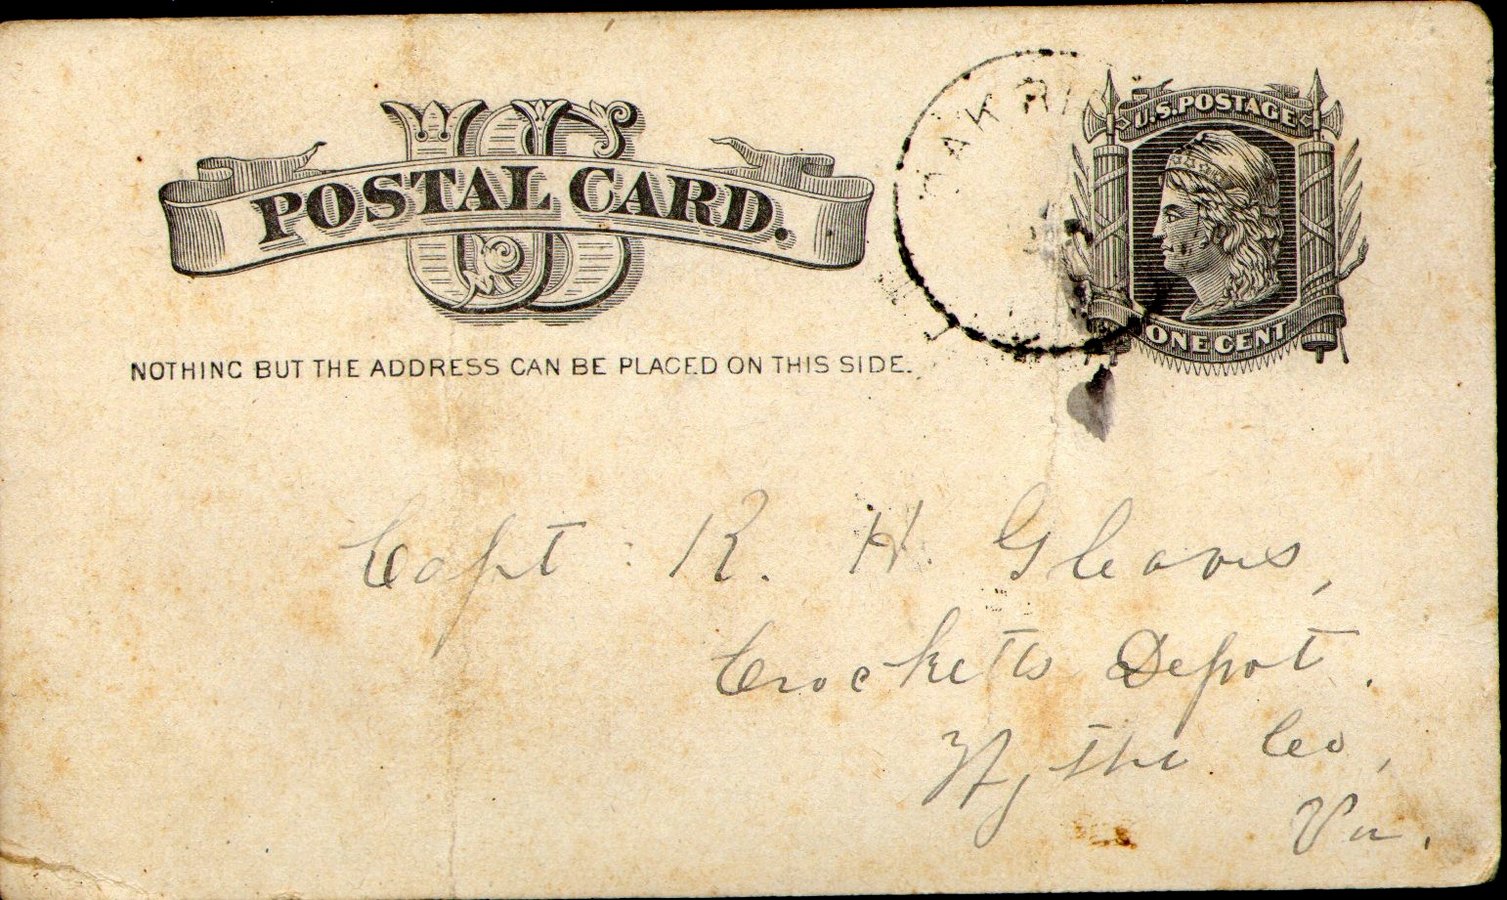 US
POSTAL CARD.
U.S. POSTAGE
ONE CENT
NOTHING BUT THE ADDRESS CAN BE PLACED ON THIS SIDE.
Capt: R. H. Gleaves,
Crocketts Depot.
Wythe Co,
Va.